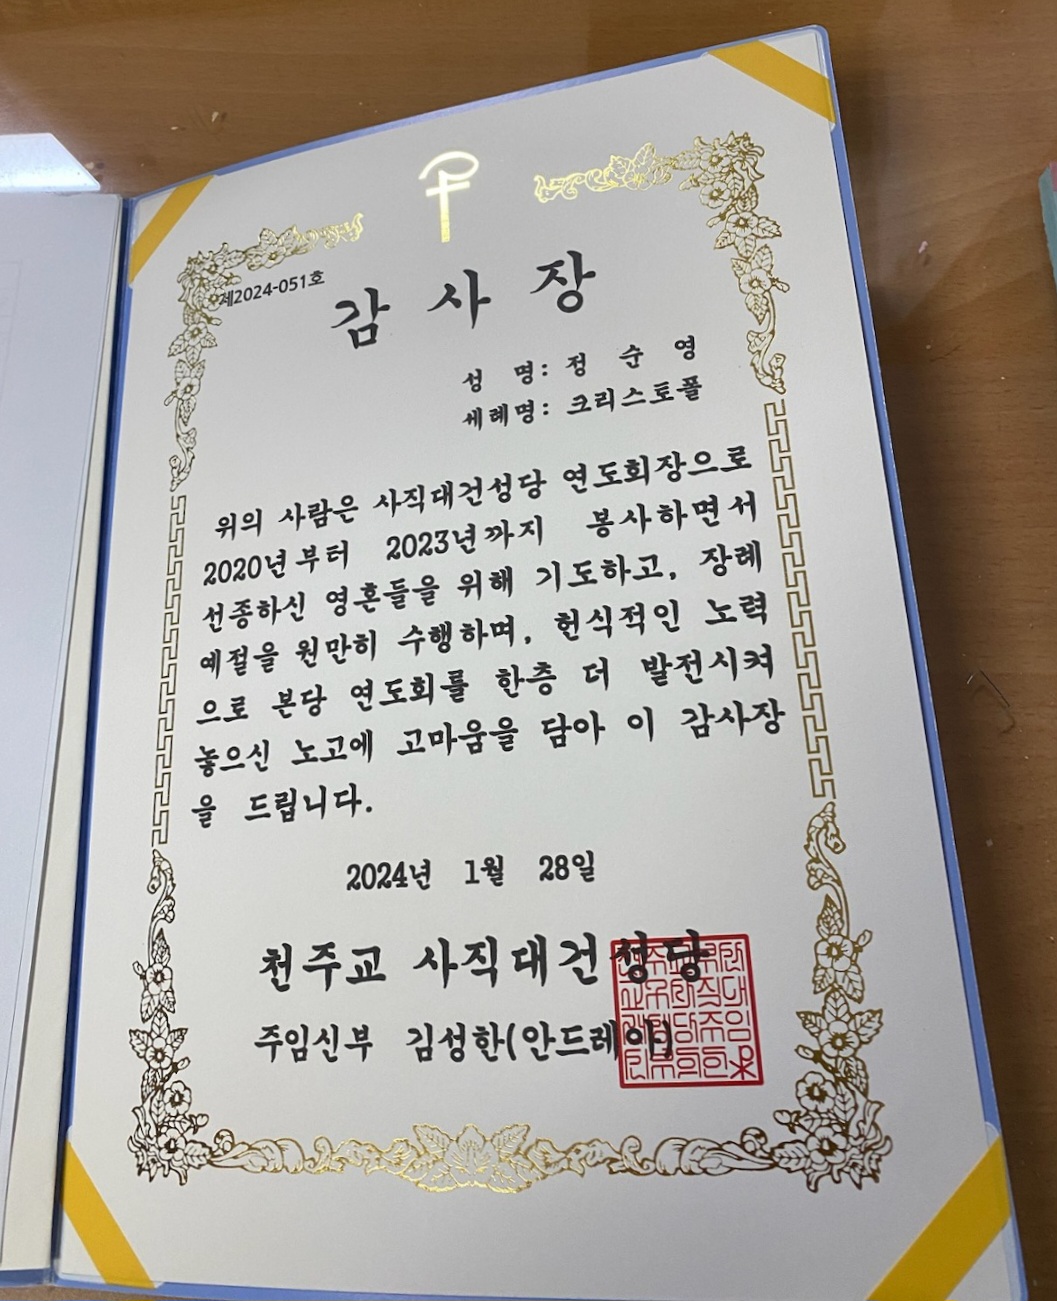 제2024-051호
감 사 장
성 명: 정 순 영
세례명: 크리스토폴
위의 사람은 사직대건성당 연도회장으로
2020년부터 2023년까지 봉사하면서
선종하신 영혼들을 위해 기도하고, 장례
예절을 원만히 수행하며, 헌식적인 노력
으로 본당 연도회를 한층 더 발전시켜
놓으신 노고에 고마움을 담아 이 감사장
을 드립니다.
2024년 1월 28일
천주교 사직대건성당
주임신부 김성한(안드레아)